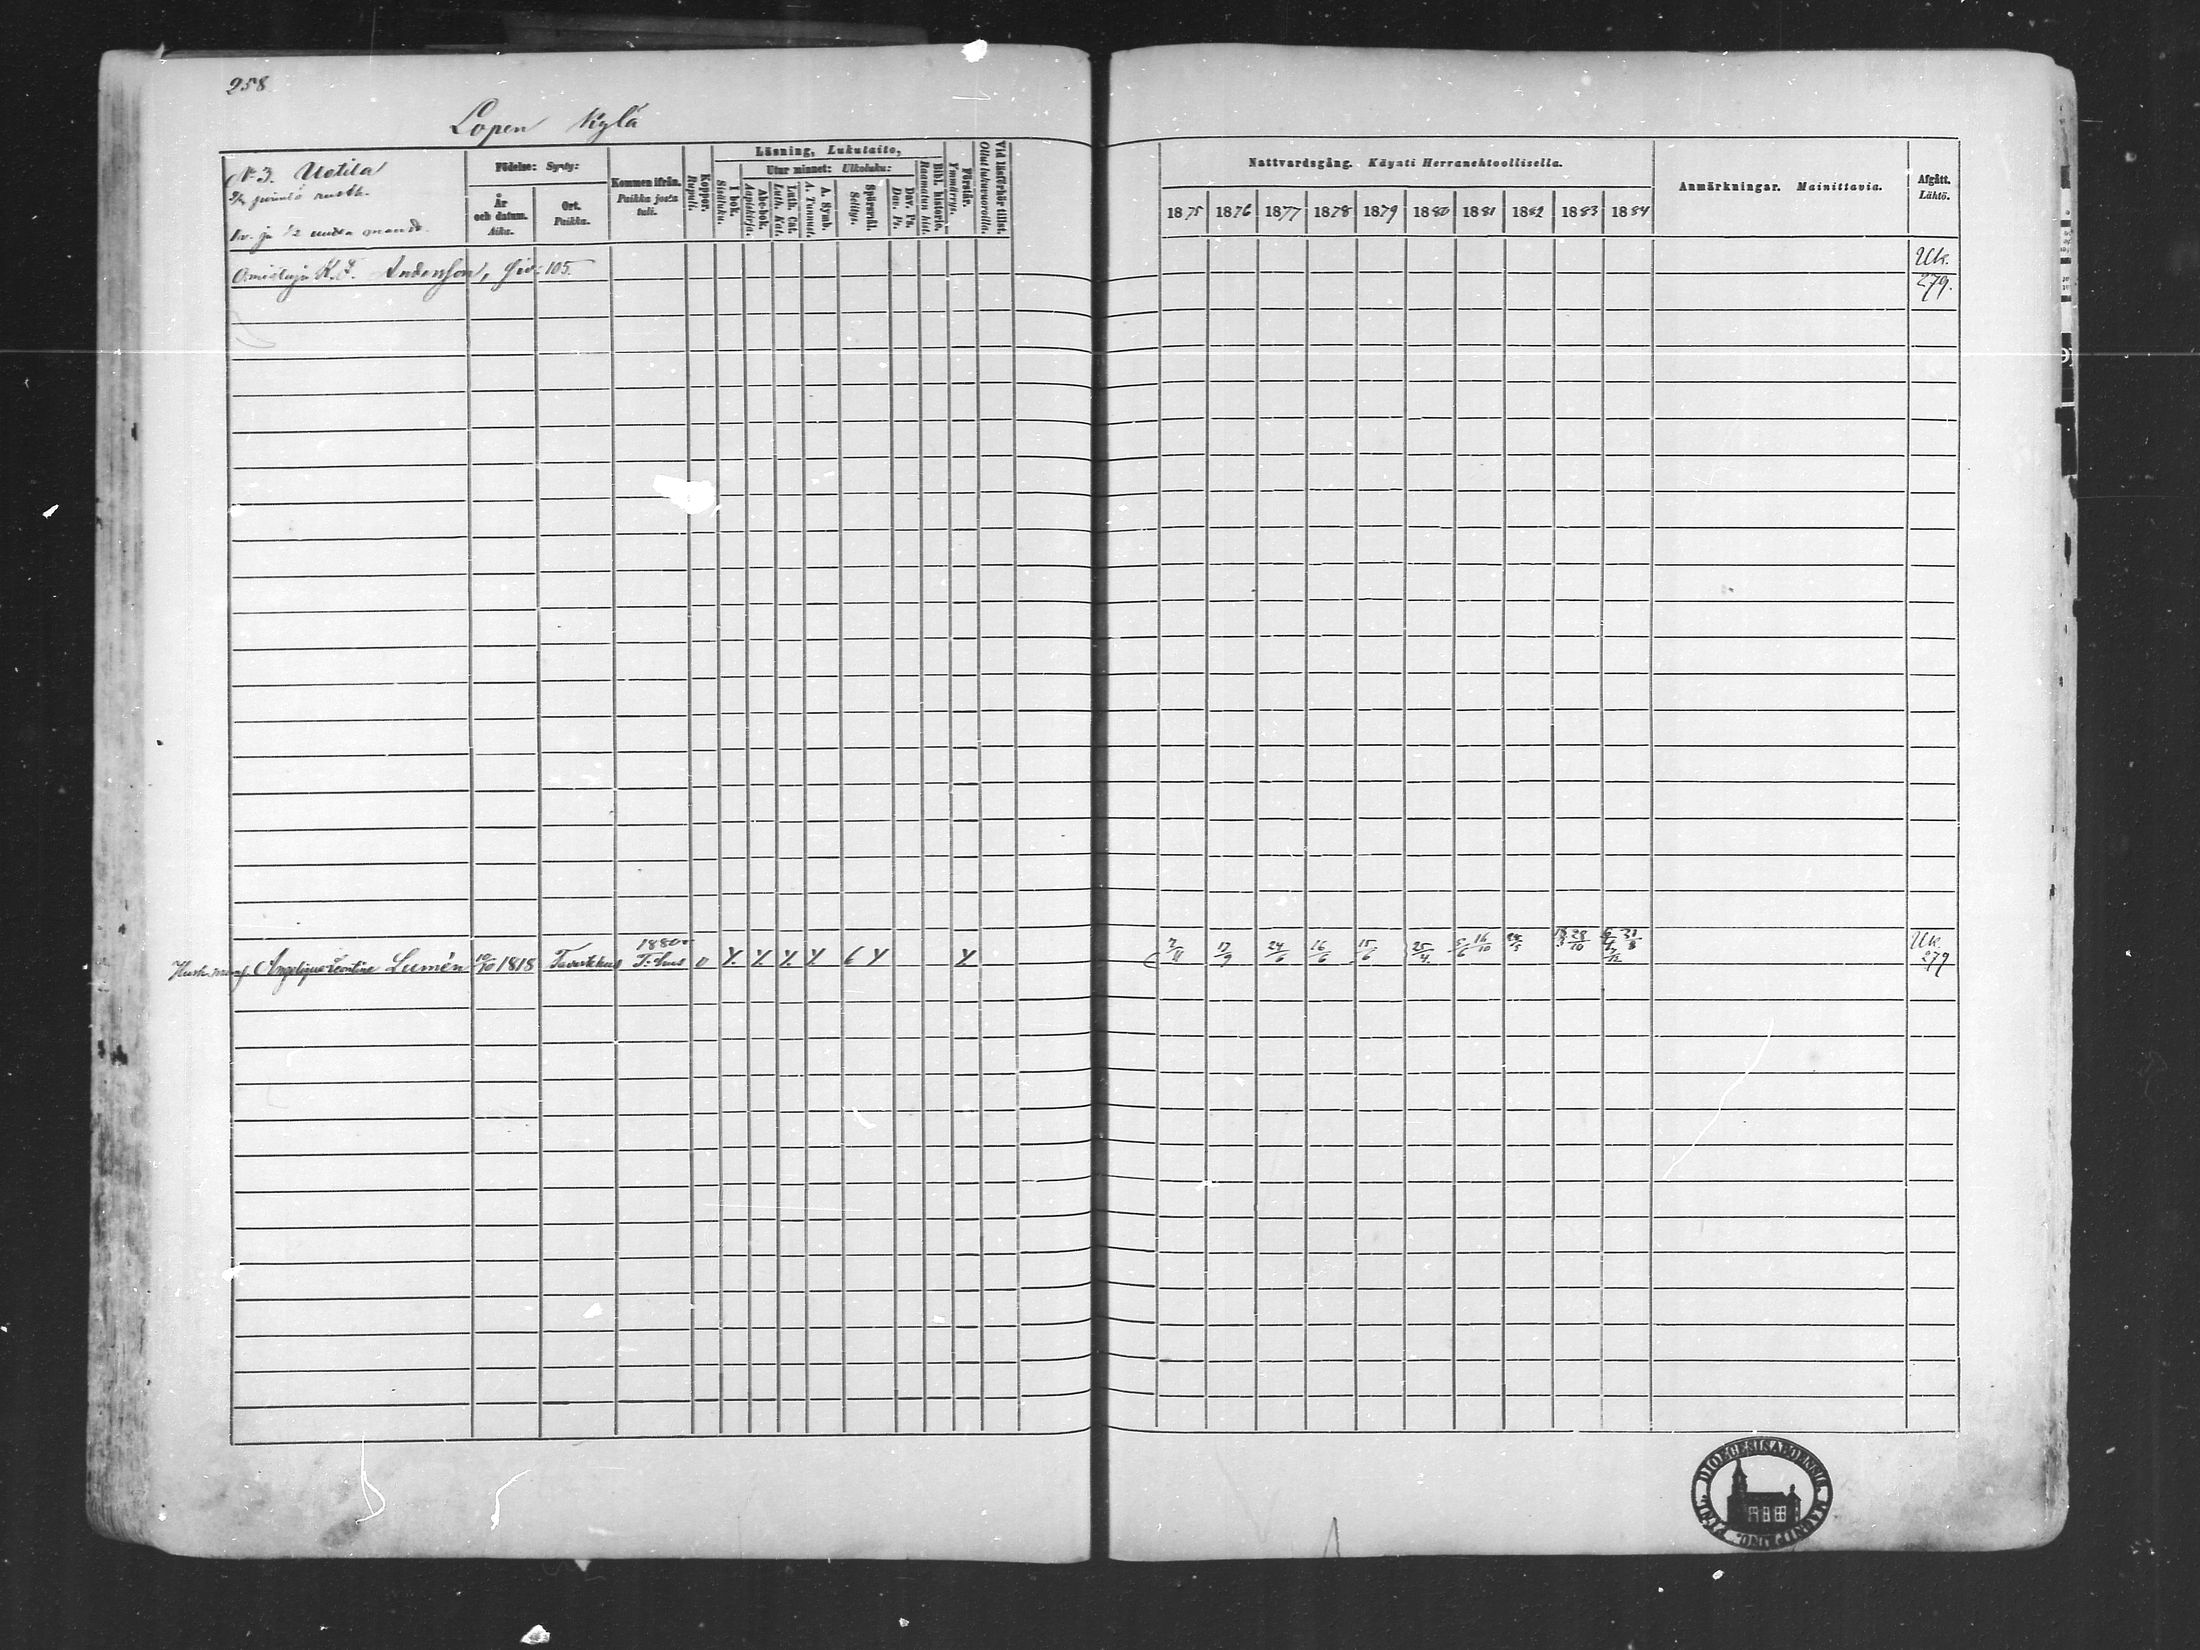 258
Lopen kylä
N:3. Uotila
perintö rusth.
ja 1/2 uutta
Födelse: Synty:
År och datum. Aika.
Ort. Paikka.
Kommen ifrån. Paikka josta tuli.
Koppor. Rupuli.
Läsning, Lukutaito,
I bok. Sisäluku.
Utur minnet: Ulkoluku:
Abc-bok. Aapiskirja.
Luth. Cat. Luth. Kat.
A. Symb. A. Tunnust.
Spörsmål. Selitys.
Dav. Ps. Dav. Ps.
Bibl. historie. Raamatun hist.
Förstår. Ymmärrys.
Vid läsförhör tillst. Ollut lukuvuoroilla.
Nattvardsgång. Käynti Herranehtoollisella.
1875 1876 1877 1878 1879 1880 1881 1882 1883 1884
Anmärkningar. Mainittavia.
Afgått. Lähtö.
Omistaja K. F. Andersson, siv: 105. Uk. 279.
1880
Angelique Leontine Lumén 10/10 1818 Tavastehus T:hus 0 7/11 17/9 24/6 16/6 15/6 25/4 5/6 16/10 28/10 31/8 Uk. 279
DIOECESIS ABOENSIS